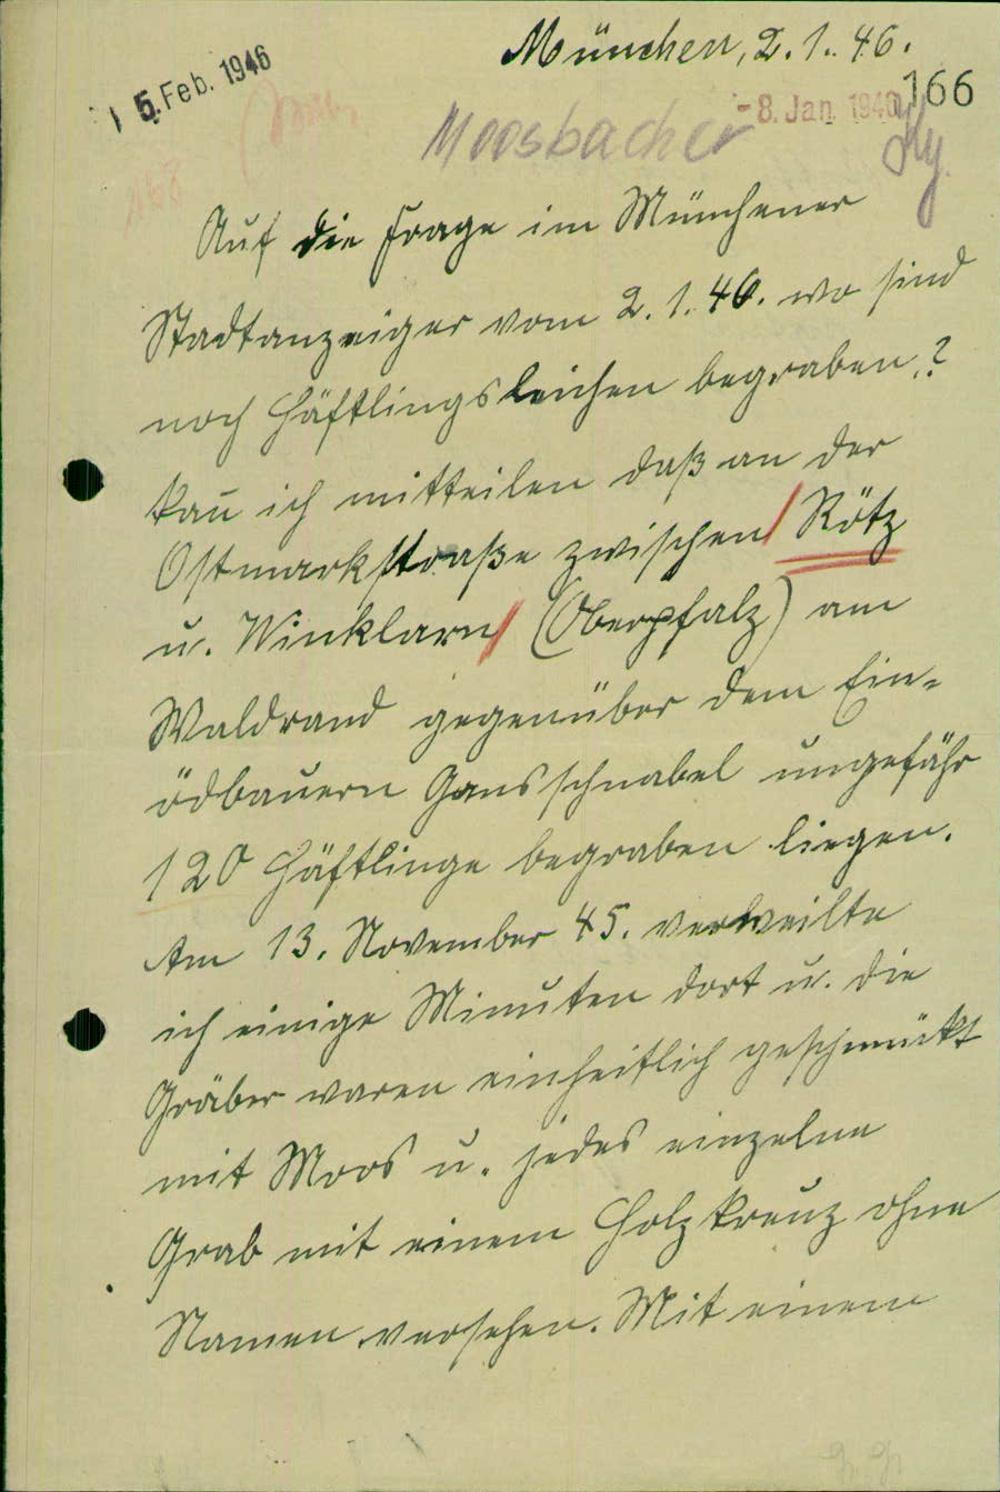 München, 2. 1. 46.
5. Feb. 1946
- 8. Jan. 1946
166
Moosbacher
Auf die Frage im Münchener
Stadtanzeiger vom 2. 1. 46. wo sind
noch Häftlingsleichen begraben?
kan̄ ich mitteilen daß an der
Ostmarkstraße zwischen Rötz
u. Winklarn (Oberpfalz) am
Waldrand gegenüber dem Ein-
ödbauern Gansschnabel ungefähr
120 Häftlinge begraben liegen.
Am 13. November 45. verweilte
ich einige Minuten dort u. die
Gräber waren einheitlich geschmückt
mit Moos u. jedes einzelne
Grab mit einem Holzkreuz ohne
Namen versehen. Mit einem